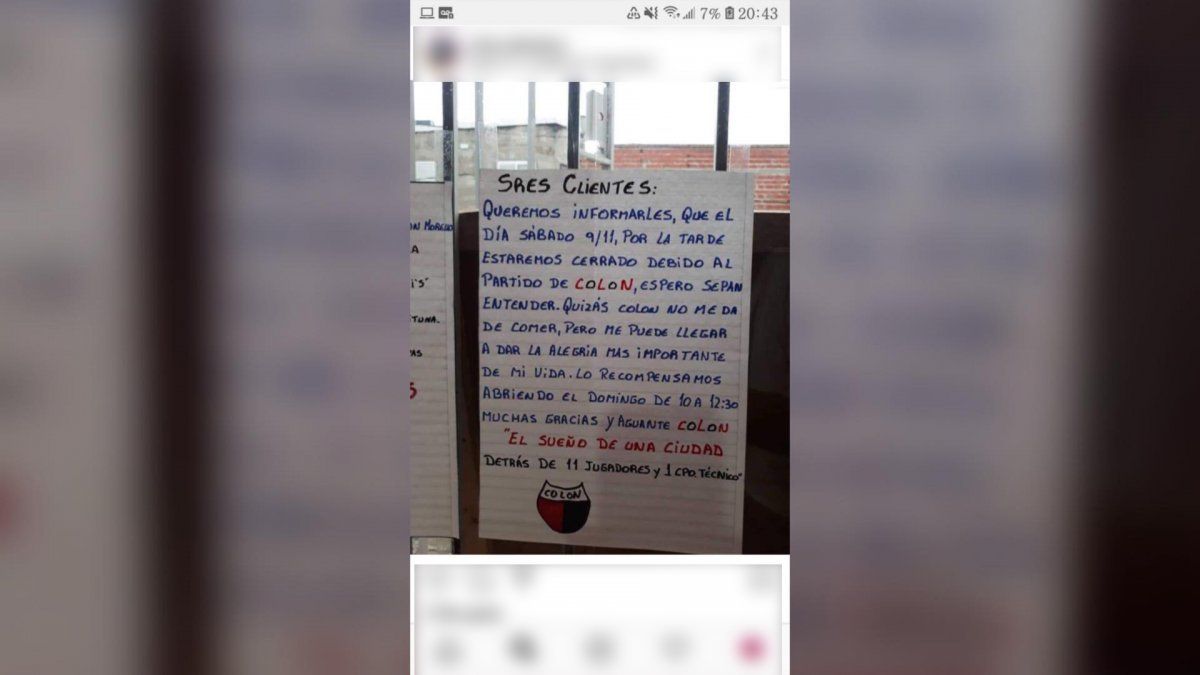 7% 20:43
SRES CLIENTES:
QUEREMOS INFORMARLES, QUE EL
DÍA SÁBADO 9/11, POR LA TARDE
ESTAREMOS CERRADO DEBIDO AL
PARTIDO DE COLON, ESPERO SEPAN
ENTENDER. QUIZÁS COLON NO ME DA
DE COMER, PERO ME PUEDE LLEGAR
A DAR LA ALEGRIA MAS IMPORTANTE
DE MI VIDA. LO RECOMPENSAMOS
ABRIENDO EL DOMINGO DE 10 A 12:30
MUCHAS GRACIAS Y AGUANTE COLON
"EL SUEÑO DE UNA CIUDAD
DETRÁS DE 11 JUGADORES Y 1 CPO. TÉCNICO"
COLON
MORENO
A
TUNA.